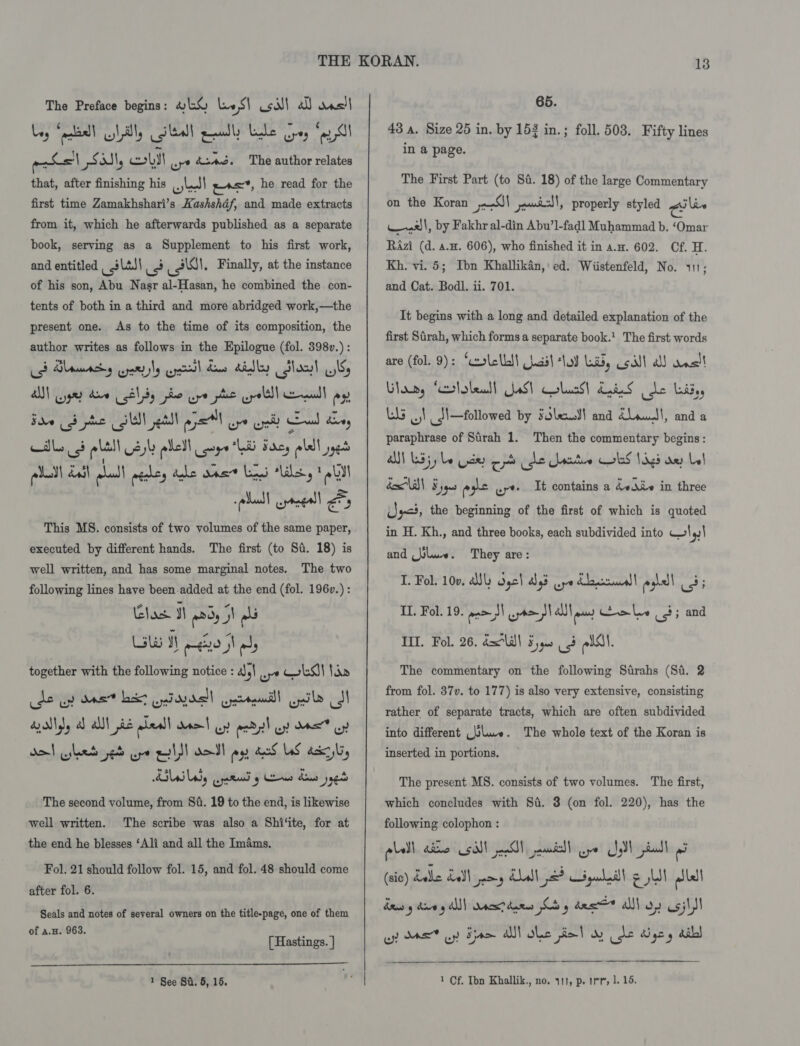 THE KORAN.
13
The Preface begins: الحمد لله الذى اكرمنا بكتابه
الكريم‘ ومن علينا بالسبع المثانى والقران العظيم‘ وما
ضمّنه من الايات والذكر الحكيم. The author relates
that, after finishing his مجمع البيان, he read for the
first time Zamakhshari’s Kashshâf, and made extracts
from it, which he afterwards published as a separate
book, serving as a Supplement to his first work,
and entitled الكافى فى الشافى. Finally, at the instance
of his son, Abu Naṣr al-Hasan, he combined the con-
tents of both in a third and more abridged work,—the
present one. As to the time of its composition, the
author writes as follows in the Epilogue (fol. 398v.):
وكان ابتدائى بتاليفه سنة اثنتين واربعين وخمسمائة فى
يوم السبت الثامن عشر من صفر وفراغى منه بعون الله
ومنه لستّ بقين من المحرّم الشهر الثانى عشر فى مدة
شهور العام وعدة نقباء موسى الاعلام بارض الشام فى سالف
الايام¹ وخلفاء نبيّنا محمّد عليه وعليهم السلم ائمة الاسلام
وحجج المهيمن السلام.
This MS. consists of two volumes of the same paper,
executed by different hands. The first (to Sû. 18) is
well written, and has some marginal notes. The two
following lines have been added at the end (fol. 196v.):
فلم ار ودّهم الّا خداعًا
ولم ار دينهم الّا نفاقا
together with the following notice: هذا الكتاب من اوّله
الى هاتين القسيمتين الجديدتين بخط محمد بن على
بن محمد بن ابرهيم بن احمد المعلّم غفر الله له ولوالديه
وتاريخه كما كتبه يوم الاحد الرابع من شهر شعبان احد
شهور سنة ست و تسعين وثمانمائة.
The second volume, from Sû. 19 to the end, is likewise
well written. The scribe was also a Shi‘ite, for at
the end he blesses ‘Ali and all the Imâms.
Fol. 21 should follow fol. 15, and fol. 48 should come
after fol. 6.
Seals and notes of several owners on the title-page, one of them
of A.H. 963.
[Hastings.]
¹ See Sû. 5, 15.
65.
43 A. Size 25 in. by 15¾ in.; foll. 503. Fifty lines
in a page.
The First Part (to Sû. 18) of the large Commentary
on the Koran التفسير الكبير, properly styled مفاتيح
الغيب, by Fakhr al-din Abu’l-faḍl Muḥammad b. ‘Omar
Râzî (d. A.H. 606), who finished it in A.H. 602. Cf. H.
Kh. vi. 5; Ibn Khallikân, ed. Wüstenfeld, No. ٦١١;
and Cat. Bodl. ii. 701.
It begins with a long and detailed explanation of the
first Sûrah, which forms a separate book.¹ The first words
are (fol. 9): الحمد لله الذى وفّقنا لاداء افضل الطاعات‘
ووفّقنا على كيفية اكتساب اكمل السعادات‘ وهدانا
الى ان قلنا—followed by الاستعاذة and البسملة, and a
paraphrase of Sûrah 1. Then the commentary begins:
اما بعد فهذا كتاب مشتمل على شرح بعض ما رزقنا الله
من علوم سورة الفاتحة. It contains a مقدمة in three
فصول, the beginning of the first of which is quoted
in H. Kh., and three books, each subdivided into ابواب
and مسائل. They are:
I. Fol. 10v. فى العلوم المستنبطة من قوله اعوذ بالله;
II. Fol. 19. فى مباحث بسم الله الرحمن الرحيم; and
III. Fol. 26. الكلام فى سورة الفاتحة.
The commentary on the following Sûrahs (Sû. 2
from fol. 37v. to 177) is also very extensive, consisting
rather of separate tracts, which are often subdivided
into different مسائل. The whole text of the Koran is
inserted in portions.
The present MS. consists of two volumes. The first,
which concludes with Sû. 3 (on fol. 220), has the
following colophon:
تم السفر الاول من التفسير الكبير الذى صنّفه الامام
العالم البارع الفيلسوف فخر الملة وحبر الامة علامة (sic)
الرازى برد الله مضجعه و شكر سعيه بحمد الله ومنه و سعة
لطفه وعونه على يد احقر عباد الله حمزة بن محمد بن
¹ Cf. Ibn Khallik., no. ٦١١, p. ١٣٣, l. 15.